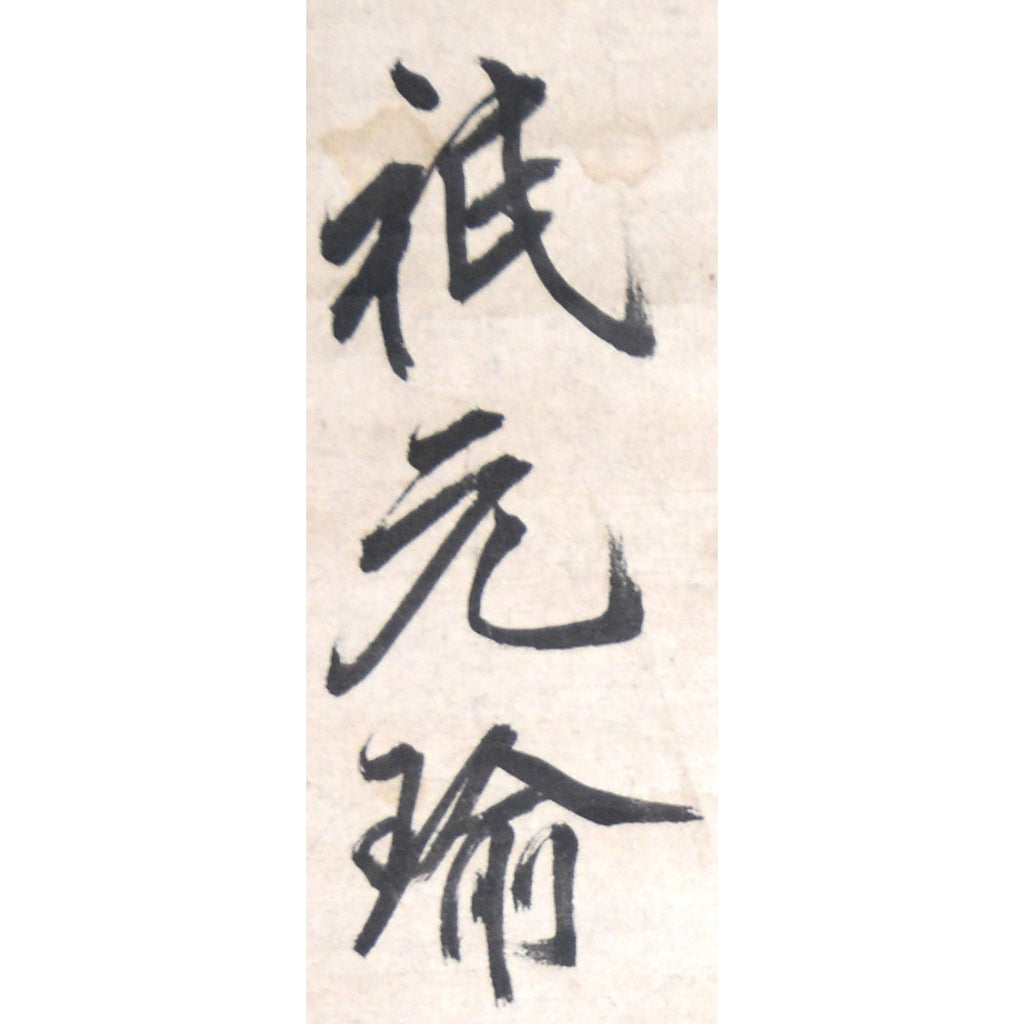 祇元瑜